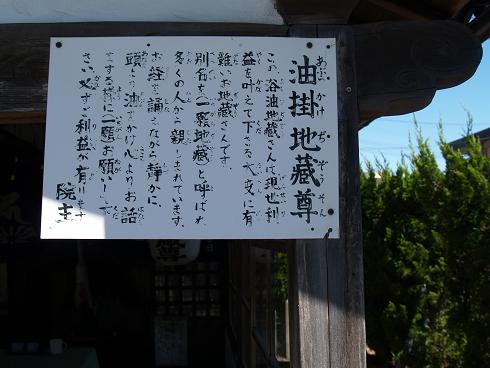 油掛地蔵尊
この浴油地蔵さんは現世利
益を叶えて下さる大変に有
難いお地蔵さんです。
別名を一願地蔵と呼ばれ
多くの人から親しまれています。
お経を誦しながら静かに、
頭より油をかけ心よりお話
をする様に一願お願いして下
さい必ずご利益が有ります
院主